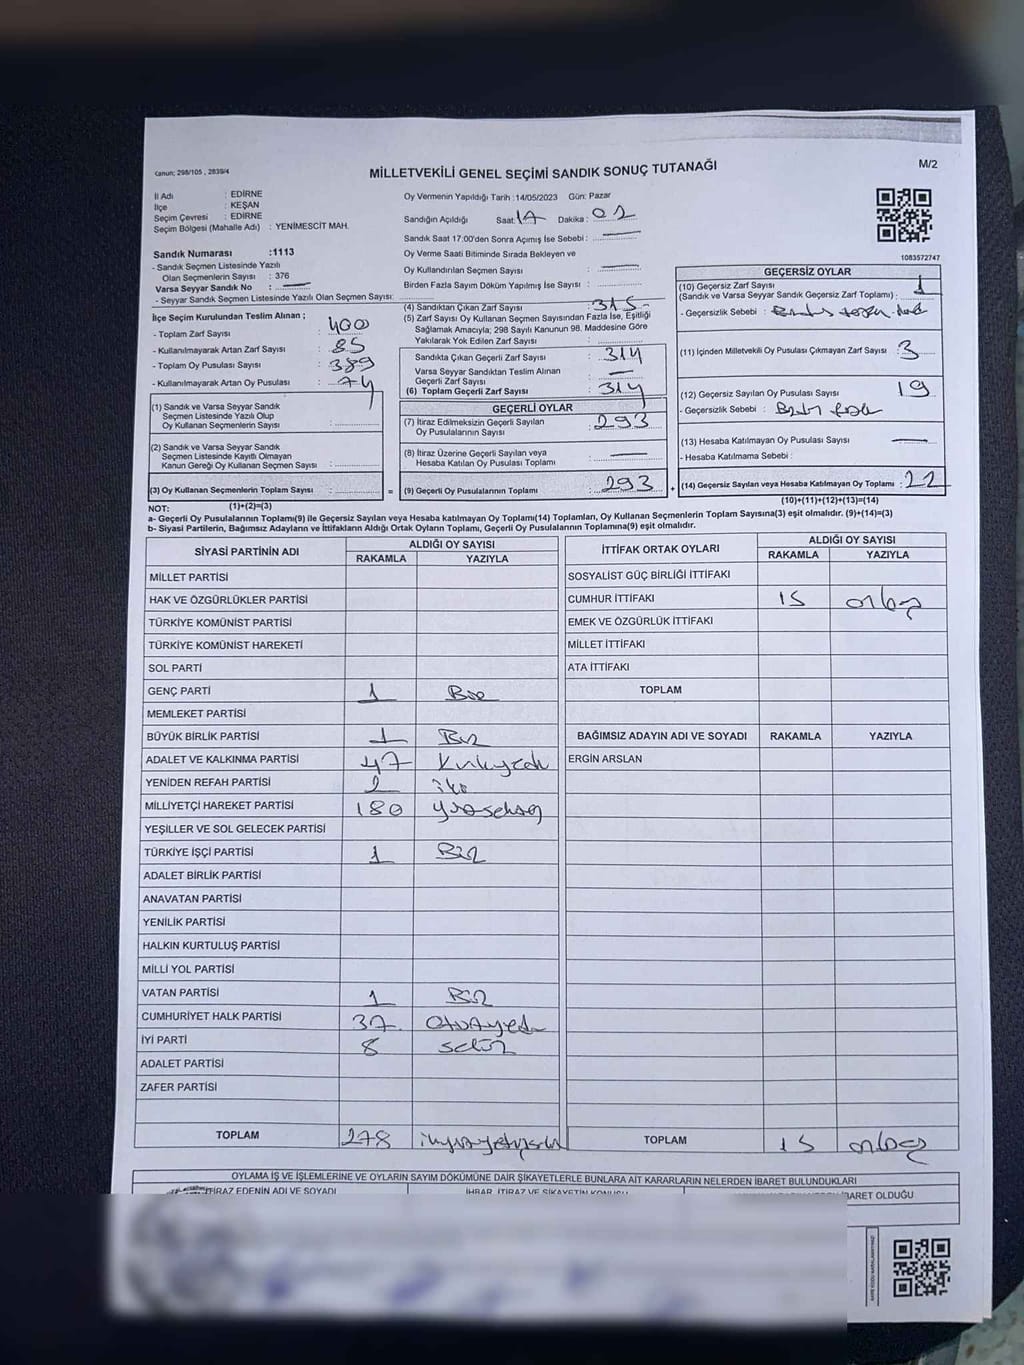 Kanun; 298/105 , 2839/4
MİLLETVEKİLİ GENEL SEÇİMİ SANDIK SONUÇ TUTANAĞI
M/2
İl Adı : EDİRNE
İlçe : KEŞAN
Seçim Çevresi : EDİRNE
Seçim Bölgesi (Mahalle Adı) : YENİMESCİT MAH.
Oy Vermenin Yapıldığı Tarih :14/05/2023 Gün: Pazar
Sandığın Açıldığı Saat: 17 Dakika : 02
Sandık Saat 17:00'den Sonra Açımış İse Sebebi :
Oy Verme Saati Bitiminde Sırada Bekleyen ve
Oy Kullandırılan Seçmen Sayısı :
Birden Fazla Sayım Döküm Yapılmış İse Sayısı :
1083572747
Sandık Numarası :1113
- Sandık Seçmen Listesinde Yazılı
Olan Seçmenlerin Sayısı : 376
Varsa Seyyar Sandık No :
- Seyyar Sandık Seçmen Listesinde Yazılı Olan Seçmen Sayısı:
İlçe Seçim Kurulundan Teslim Alınan ;
- Toplam Zarf Sayısı : 400
- Kullanılmayarak Artan Zarf Sayısı : 85
- Toplam Oy Pusulası Sayısı : 389
- Kullanılmayarak Artan Oy Pusulası : 74
(1) Sandık ve Varsa Seyyar Sandık
Seçmen Listesinde Yazılı Olup
Oy Kullanan Seçmenlerin Sayısı :
(2) Sandık ve Varsa Seyyar Sandık
Seçmen Listesinde Kayıtlı Olmayan
Kanun Gereği Oy Kullanan Seçmen Sayısı :
(3) Oy Kullanan Seçmenlerin Toplam Sayısı :
(1)+(2)=(3)
(4) Sandıktan Çıkan Zarf Sayısı : 315
(5) Zarf Sayısı Oy Kullanan Seçmen Sayısından Fazla İse, Eşitliği
Sağlamak Amacıyla; 298 Sayılı Kanunun 98. Maddesine Göre
Yakılarak Yok Edilen Zarf Sayısı :
Sandıkta Çıkan Geçerli Zarf Sayısı : 314
Varsa Seyyar Sandıktan Teslim Alınan
Geçerli Zarf Sayısı :
(6) Toplam Geçerli Zarf Sayısı : 314
GEÇERLİ OYLAR
(7) İtiraz Edilmeksizin Geçerli Sayılan
Oy Pusulalarının Sayısı : 293
(8) İtiraz Üzerine Geçerli Sayılan veya
Hesaba Katılan Oy Pusulası Toplamı :
= (9) Geçerli Oy Pusulalarının Toplamı : 293 +
GEÇERSİZ OYLAR
(10) Geçersiz Zarf Sayısı 1
(Sandık ve Varsa Seyyar Sandık Geçersiz Zarf Toplamı) :
- Geçersizlik Sebebi :
(11) İçinden Milletvekili Oy Pusulası Çıkmayan Zarf Sayısı : 3
(12) Geçersiz Sayılan Oy Pusulası Sayısı : 19
- Geçersizlik Sebebi :
(13) Hesaba Katılmayan Oy Pusulası Sayısı :
- Hesaba Katılmama Sebebi :
(14) Geçersiz Sayılan veya Hesaba Katılmayan Oy Toplamı : 22
(10)+(11)+(12)+(13)=(14)
NOT:
a- Geçerli Oy Pusulalarının Toplamı(9) ile Geçersiz Sayılan veya Hesaba katılmayan Oy Toplamı(14) Toplamları, Oy Kullanan Seçmenlerin Toplam Sayısına(3) eşit olmalıdır. (9)+(14)=(3)
b- Siyasi Partilerin, Bağımsız Adayların ve İttifakların Aldığı Ortak Oyların Toplamı, Geçerli Oy Pusulalarının Toplamına(9) eşit olmalıdır.
SİYASİ PARTİNİN ADI ALDIĞI OY SAYISI
RAKAMLA YAZIYLA
MİLLET PARTİSİ
HAK VE ÖZGÜRLÜKLER PARTİSİ
TÜRKİYE KOMÜNİST PARTİSİ
TÜRKİYE KOMÜNİST HAREKETİ
SOL PARTİ
GENÇ PARTİ 1 Bir
MEMLEKET PARTİSİ
BÜYÜK BİRLİK PARTİSİ 1 Bir
ADALET VE KALKINMA PARTİSİ 47 Kırkyedi
YENİDEN REFAH PARTİSİ 2 iki
MİLLİYETÇİ HAREKET PARTİSİ 180 yüzseksen
YEŞİLLER VE SOL GELECEK PARTİSİ
TÜRKİYE İŞÇİ PARTİSİ 1 Bir
ADALET BİRLİK PARTİSİ
ANAVATAN PARTİSİ
YENİLİK PARTİSİ
HALKIN KURTULUŞ PARTİSİ
MİLLİ YOL PARTİSİ
VATAN PARTİSİ 1 Bir
CUMHURİYET HALK PARTİSİ 37 otuzyedi
İYİ PARTİ 8 sekiz
ADALET PARTİSİ
ZAFER PARTİSİ
TOPLAM 278 ikiyüzyetmişsekiz
İTTİFAK ORTAK OYLARI ALDIĞI OY SAYISI
RAKAMLA YAZIYLA
SOSYALİST GÜÇ BİRLİĞİ İTTİFAKI
CUMHUR İTTİFAKI 15 onbeş
EMEK VE ÖZGÜRLÜK İTTİFAKI
MİLLET İTTİFAKI
ATA İTTİFAKI
TOPLAM
BAĞIMSIZ ADAYIN ADI VE SOYADI RAKAMLA YAZIYLA
ERGİN ARSLAN
TOPLAM 15 onbeş
OYLAMA İŞ VE İŞLEMLERİNE VE OYLARIN SAYIM DÖKÜMÜNE DAİR ŞİKAYETLERLE BUNLARA AİT KARARLARIN NELERDEN İBARET BULUNDUKLARI
İTİRAZ EDENİN ADI VE SOYADI İHBAR, İTİRAZ VE ŞİKAYETİN KONUSU İBARET OLDUĞU